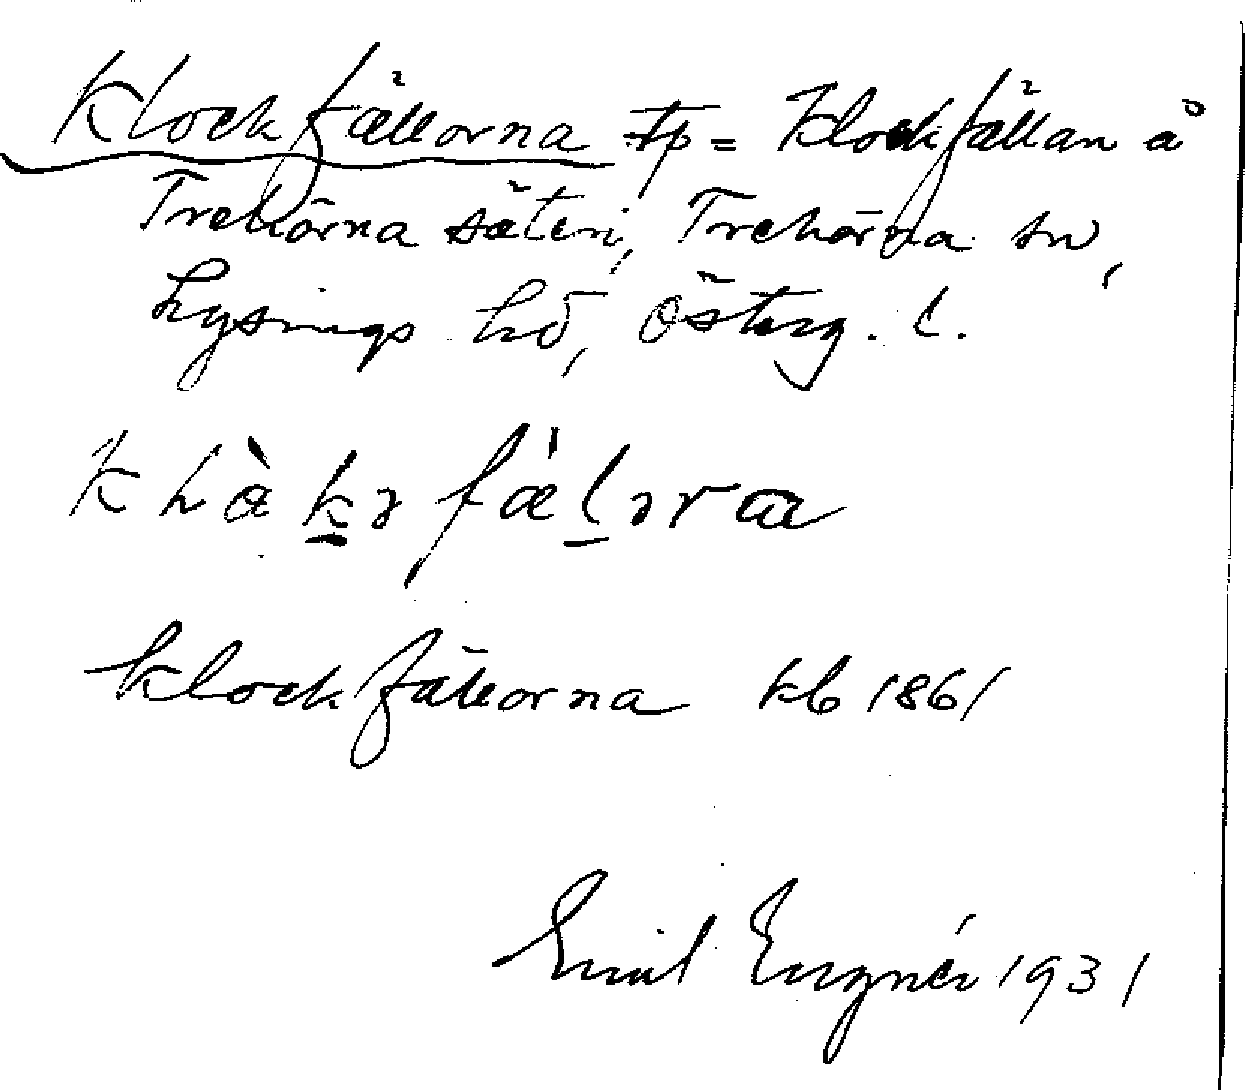 Klockfällorna tp = Klockfällan å
Trehörna säteri, Trehörna sn,
Lysings hd, Österg. l.
Klockfällorna kb 1861
Emil Engnér 1931